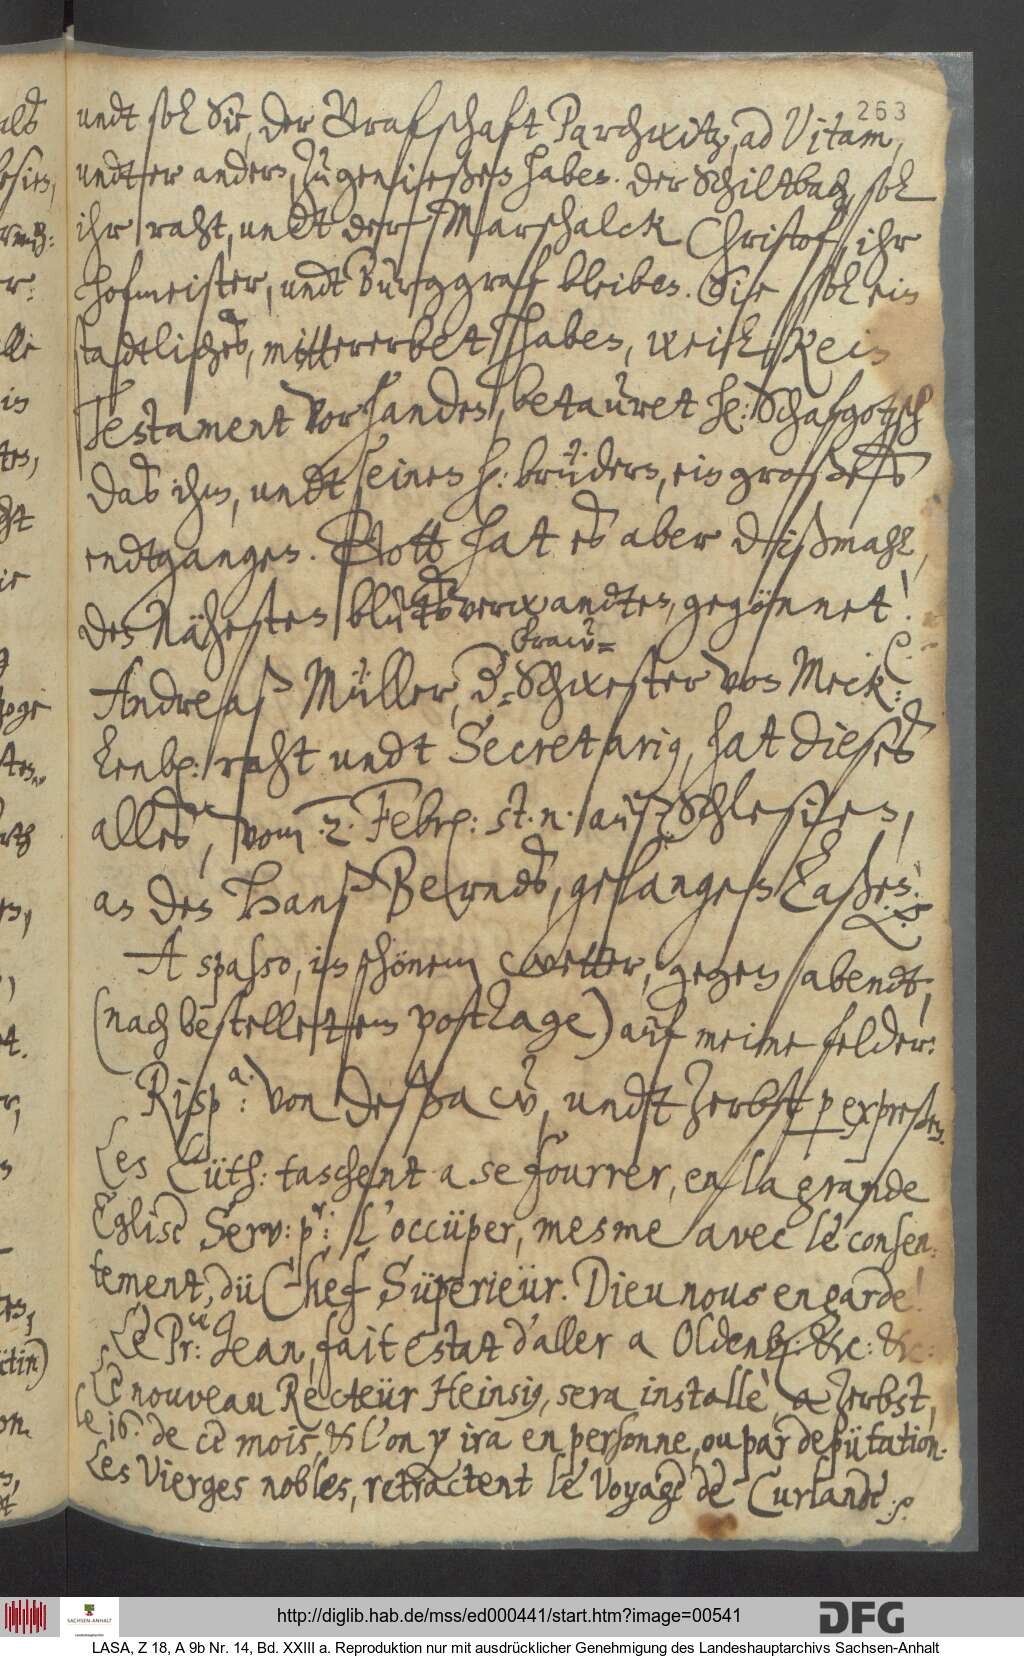 263
undt sol Sie, der Grafschaft Parchwitz, ad Vitam,
undt er anders, zugeniessen haben. Der Schiltbach, sol
ihr raht, undt der Marschalck Christof, ihr
hofmeister, undt Burggraf bleiben. Sie sol ein
stadtliches, mitt ererbet haben, weil kein
Testament vorhanden, betauret he: Schafgotzsch
das ihm, undt seinen h: brüdern, ein großes
endtgangen. Gott hat es aber dißmahl,
den Nähesten blutsverwandten, gegönnet!
Andreaß Müller, d. Schwester von Meck:
fraw=
lenb: raht undt Secretarius, hat dieses
alles, vom .2. Febr: st. n. auß Schlesien,
an den Hanß Berndt, gelangen laßen.
A spasso, in schönem wetter, gegen abendt,
(nach bestelletem postTage) auf meine felder.
Rispa: von Deßaw, undt Zerbst p expressen.
Les Lüth: taschent a se fourrer, en la grande
Eglise Serv: pr: L'occüper, mesme avec le consen:
tement, dü Chef Süperieür. Dieu nous en garde!
Le Pr: Jean, fait estat d'aller a Oldenb: &c: &c:
Le nouveau Recteür Heinsius, sera installè, a Zerbst,
le 16. de ce mois, & l'on y ira en personne, ou par depütation.
Les Vierges nobles, retractent le Voyage de Curlande.
http://diglib.hab.de/mss/ed000441/start.htm?image=00541
SACHSEN-ANHALT
DFG
LASA, Z 18, A 9b Nr. 14, Bd. XXIII a. Reproduktion nur mit ausdrücklicher Genehmigung des Landeshauptarchivs Sachsen-Anhalt